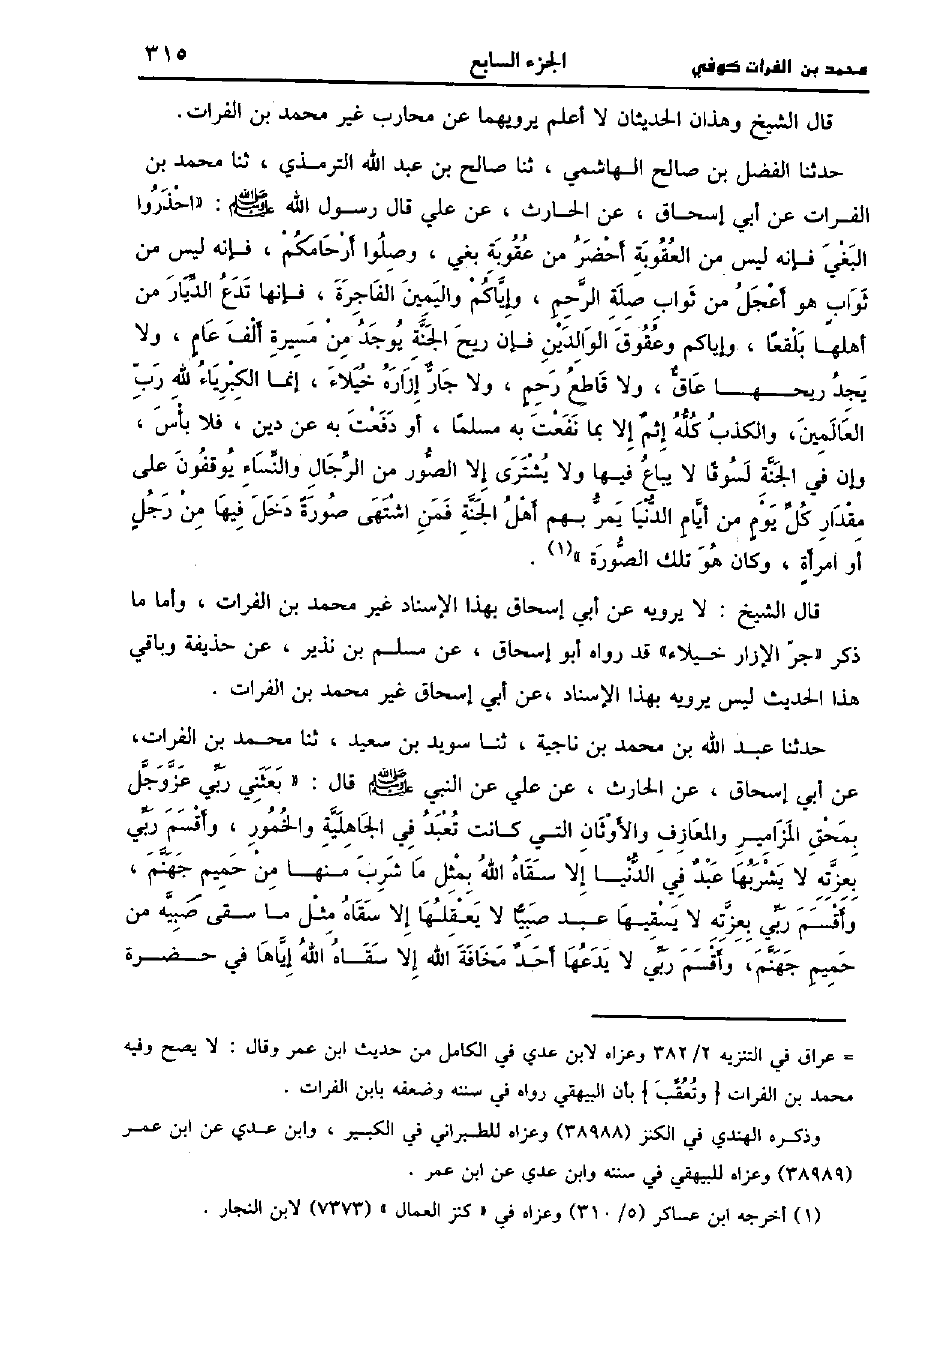 محمد بن الفرات كوفي الجزء السابع ٣١٥
قال الشيخ وهذان الحديثان لا أعلم يرويهما عن محارب غير محمد بن الفرات .
حدثنا الفضل بن صالح الهاشمي ، ثنا صالح بن عبد الله الترمذي ، ثنا محمد بن
الفرات عن أبي إسحاق ، عن الحارث ، عن علي قال رسول الله ﷺ : «احْذَرُوا
البَغْيَ فإنه ليس من العُقُوبَةِ أحْضَرُ من عقوبَةِ بغي ، وصلُوا أرْحَامكُمْ ، فإنه ليس من
ثَوَابٍ هو أعْجَلُ من ثَوابِ صِلَةِ الرَّحمِ ، وإيَّاكُمْ واليَمِينَ الفَاجِرَةَ ، فإنها تَدَعُ الدِّيَارَ من
أهلهَا بَلْقعًا ، وإياكم وعقُوقَ الوَالدَيْنِ فإن ريحَ الجنَّةِ يُوجَدُ مِنْ مَسيرةِ ألْفَ عَامٍ ، ولا
يَجدُ ريحهـا عَاقٌّ ، ولا قَاطعُ رَحِمٍ ، ولا جَارٌّ إزَارَهُ خُيَلاءَ ، إنما الكِبْرِيَاءُ للهِ رَبِّ
العَالَمِينَ، والكذبُ كُلُّهُ إثمٌ إلا بما نَفَعْتَ به مسلمًا ، أو دَفَعْتَ به عن دين ، فلا بأْسَ ،
وإن في الجَنَّةِ لَسُوقًا لا يباعُ فيها ولا يُشْتَرَى إلا الصُّور من الرِّجَالِ والنِّسَاءِ يُوقفُونَ على
مقْدَارِ كُلِّ يَوْمٍ من أيَّامِ الدُّنْيَا يَمرُّ بهم أهْلُ الجَنَّةِ فَمَنِ اشْتَهَى صُورَةً دَخَلَ فيهَا مِنْ رَجُلٍ
أو امرأةٍ ، وكان هُوَ تلك الصُّورَة »(١) .
قال الشيخ : لا يرويه عن أبي إسحاق بهذا الإسناد غير محمد بن الفرات ، وأما ما
ذكر «جرّ الإزار خيلاء» قد رواه أبو إسحاق ، عن مسلم بن نذير ، عن حذيفة وباقي
هذا الحديث ليس يرويه بهذا الإسناد ،عن أبي إسحاق غير محمد بن الفرات .
حدثنا عبد الله بن محمد بن ناجية ، ثنا سويد بن سعيد ، ثنا محمد بن الفرات،
عن أبي إسحاق ، عن الحارث ، عن علي عن النبي ﷺ قال : « بَعَثَني ربِّي عَزَّوَجَلَّ
بمَحْقِ المَزَامِيرِ والمعَازِفِ والأوْثَانِ التي كانت تُعْبَدُ في الجَاهليَّةِ والخُمُورِ ، وأقْسَمَ ربِّي
بعزَّتِهِ لا يَشْرَبُهَا عَبْدٌ في الدُّنْيَا إلا سقَاهُ اللهُ بمثْلِ مَا شَرِبَ منهـا مِنْ حَمِيمِ جَهَنَّمَ ،
وأقْسَمَ رَبِّي بعزتِهِ لا يَسْقِيهَا عبد صَبيًّا لا يَعْقلُهَا إلا سقَاهُ مثْل ما سقى صَبيَّه من
حَمِيمِ جَهَنَّمَ، وأقْسَمَ رَبِّي لا يَدَعُهَا أحَدٌ مَخَافَةَ اللهِ إلا سقَاهُ اللهُ إيَّاهَا في حضرة
= عراق في التنزيه ٢/ ٣٨٢ وعزاه لابن عدي في الكامل من حديث ابن عمر وقال : لا يصح وفيه
محمد بن الفرات { وتُعُقِّبَ } بأن البيهقي رواه في سننه وضعفه بابن الفرات .
وذكره الهندي في الكنز (٣٨٩٨٨) وعزاه للطبراني في الكبير ، وابن عدي عن ابن عمر
(٣٨٩٨٩) وعزاه للبيهقي في سننه وابن عدي عن ابن عمر .
(١) أخرجه ابن عساكر (٥/ ٣١٠) وعزاه في « كنز العمال » (٧٣٧٣) لابن النجار .